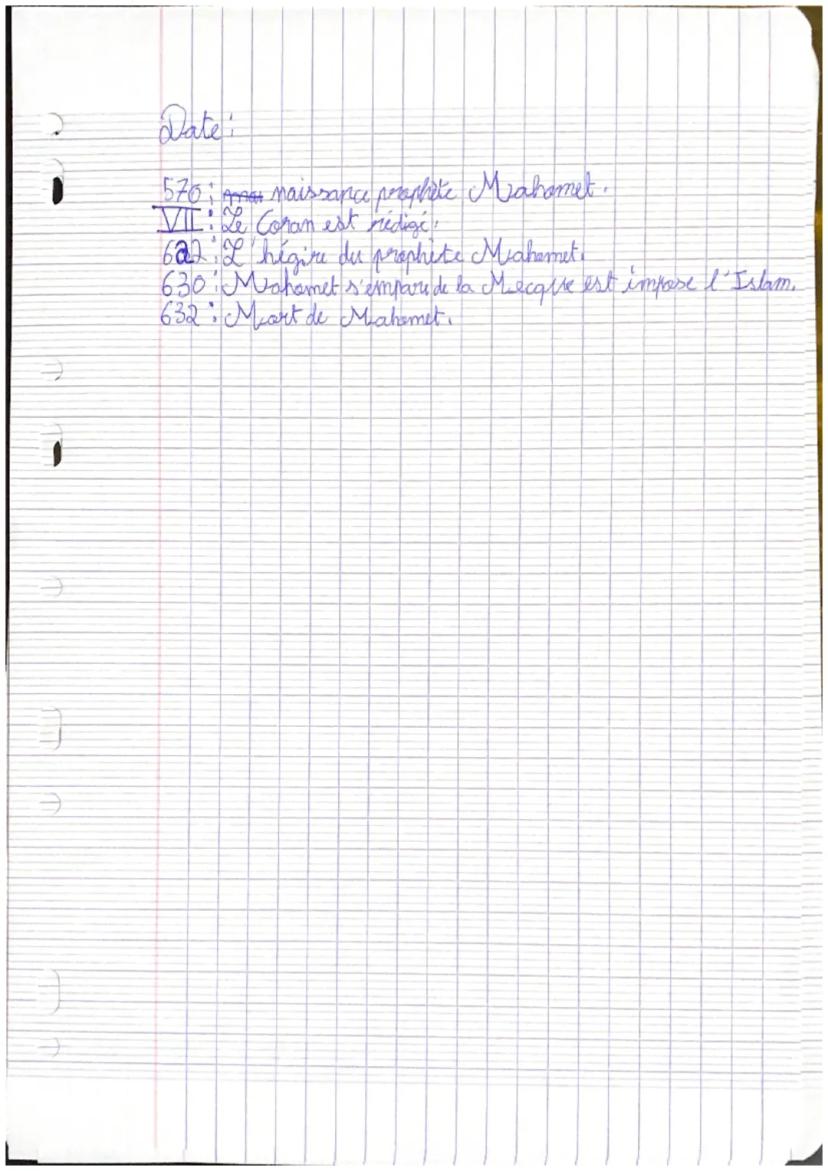 Date :
570 : naissance prophète Mahomet.
VII : Le Coran est rédigé.
622 : L'hégire du prophète Mahomet.
630 : Mahomet s'empare de la Mecque est impose l'Islam.
632 : Mort de Mahomet.